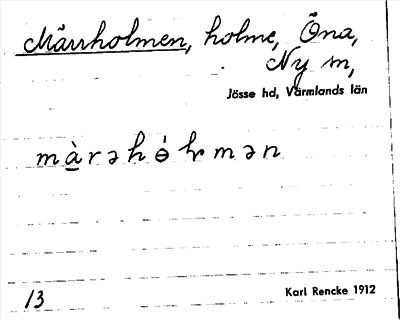 Märrholmen, holme, Öna,
Ny sn,
Jösse hd, Värmlands län
màrəhólmən
13 Karl Rencke 1912